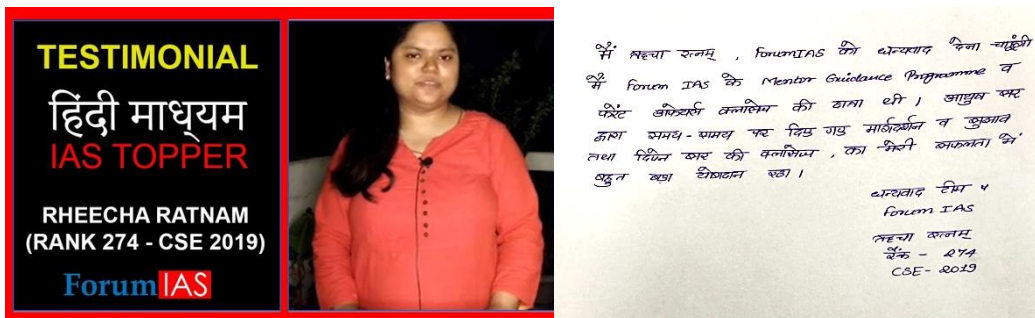 TESTIMONIAL
हिंदी माध्यम
IAS TOPPER
RHEECHA RATNAM
(RANK 274 - CSE 2019)
ForumIAS
मैं ऋचा रत्नम् , ForumIAS को धन्यवाद देना चाहूंगी
मैं Forum IAS के Mentor Guidance Programme व
करेंट अफेयर्स क्लासेज की छात्रा थी। आयुष सर
द्वारा समय-समय पर दिए गए मार्गदर्शन व सुझाव
तथा दिपिन सर की क्लासेज, का मेरी सफलता में
बहुत बड़ा योगदान रहा।
धन्यवाद टीम
Forum IAS
ऋचा रत्नम्
रैंक - 274
CSE- 2019